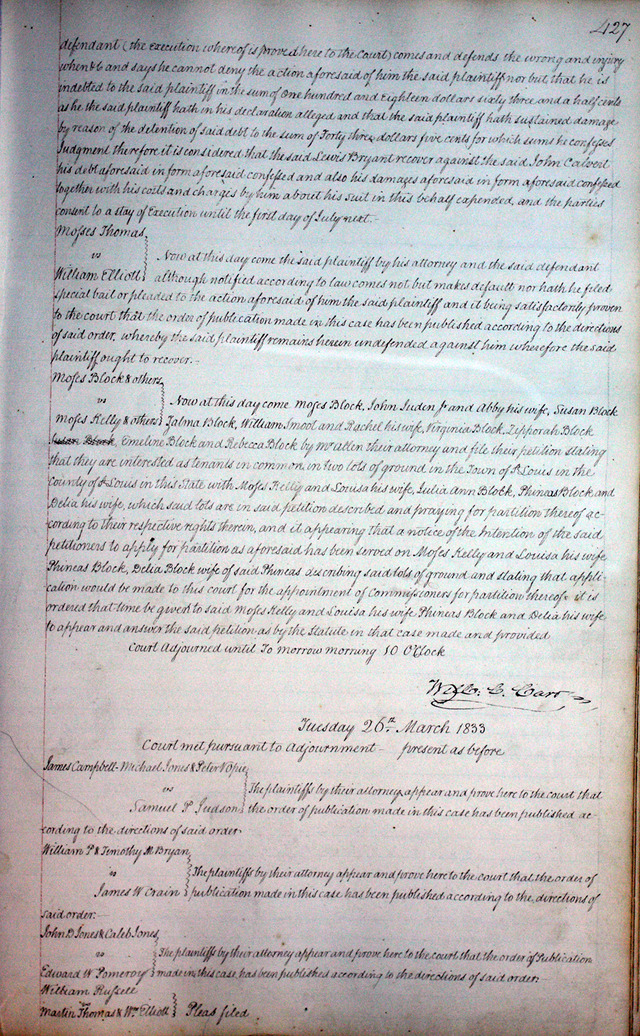 427
defendant (the execution whereof is proved here to the Court) comes and defends the wrong and injury
when &c and says he cannot deny the action aforesaid of him the said plaintiff nor but that he is
indebted to the said plaintiff in the sum of One hundred and Eighteen dollars sixty three and a half cents
as he the said plaintiff hath in his declaration alleged and that the said plaintiff hath sustained damage
by reason of the detention of said debt to the sum of Forty three dollars five cents for which sums he confesses
Judgment therefore it is considered that the said Lewis Bryant recover against the said John Calvert
his debt aforesaid in form aforesaid confessed and also his damages aforesaid in form aforesaid confessed
together with his costs and charges by him about his suit in this behalf expended, and the parties
consent to a stay of Execution until the first day of July next.-
Moses Thomas
vs
Now at this day come the said plaintiff by his attorney and the said defendant
William Elliott although notified according to law comes not but makes default nor hath he filed
special bail or pleaded to the action aforesaid of him the said plaintiff and it being satisfactorily proven
to the court that the order of publication made in this case has been published according to the directions
of said order, whereby the said plaintiff remains herein undefended against him wherefore the said
plaintiff ought to recover.-
Moses Block & others
vs
Now at this day come Moses Block, John Juden Jr and Abby his wife, Susan Block
Moses Kelly & others Zalma Block, William Smoot and Rachel his wife, Virginia Block, Zipporah Block
Susan Block, Emeline Block and Rebecca Block by Mr Allen their attorney and file their petition stating
that they are interested as tenants in common in two lots of ground in the Town of St Louis in the
County of St Louis in this State with Moses Kelly and Louisa his wife, Julia Ann Block, Phineas Block and
Delia his wife, which said lots are in said petition described and praying for partition thereof ac-
cording to their respective rights therein, and it appearing that a notice of the Intention of the said
petitioners to apply for partition as aforesaid has been served on Moses Kelly and Louisa his wife
Phineas Block, Delia Block wife of said Phineas describing said lots of ground and stating that appli-
cation would be made to this court for the appointment of Commissioners for partition thereof it is
ordered that time be given to said Moses Kelly and Louisa his wife Phineas Block and Delia his wife
to appear and answer the said petition as by the Statute in that case made and provided
Court Adjourned until To morrow morning 10 O'Clock
Wm. C. Carr
Tuesday 26th March 1833
Court met pursuant to Adjournment - present as before
James Campbell Michael Jones & Peter V Opie
vs
The plaintiffs by their attorney appear and prove here to the court that
Samuel P Judson the order of publication made in this case has been published ac-
cording to the directions of said order
William P & Timothy M Bryan
vs
The plaintiffs by their attorney appear and prove here to the court that the order of
James W Crain publication made in this case has been published according to the directions of
said order:-
John D Jones & Caleb Jones
vs
The plaintiffs by their attorney appear and prove here to the court that the order of Publication
Edward W Pomeroy made in this case, has been published according to the directions of said order:-
William Russell
vs
Martin Thomas & Wm Elliott Pleas filed